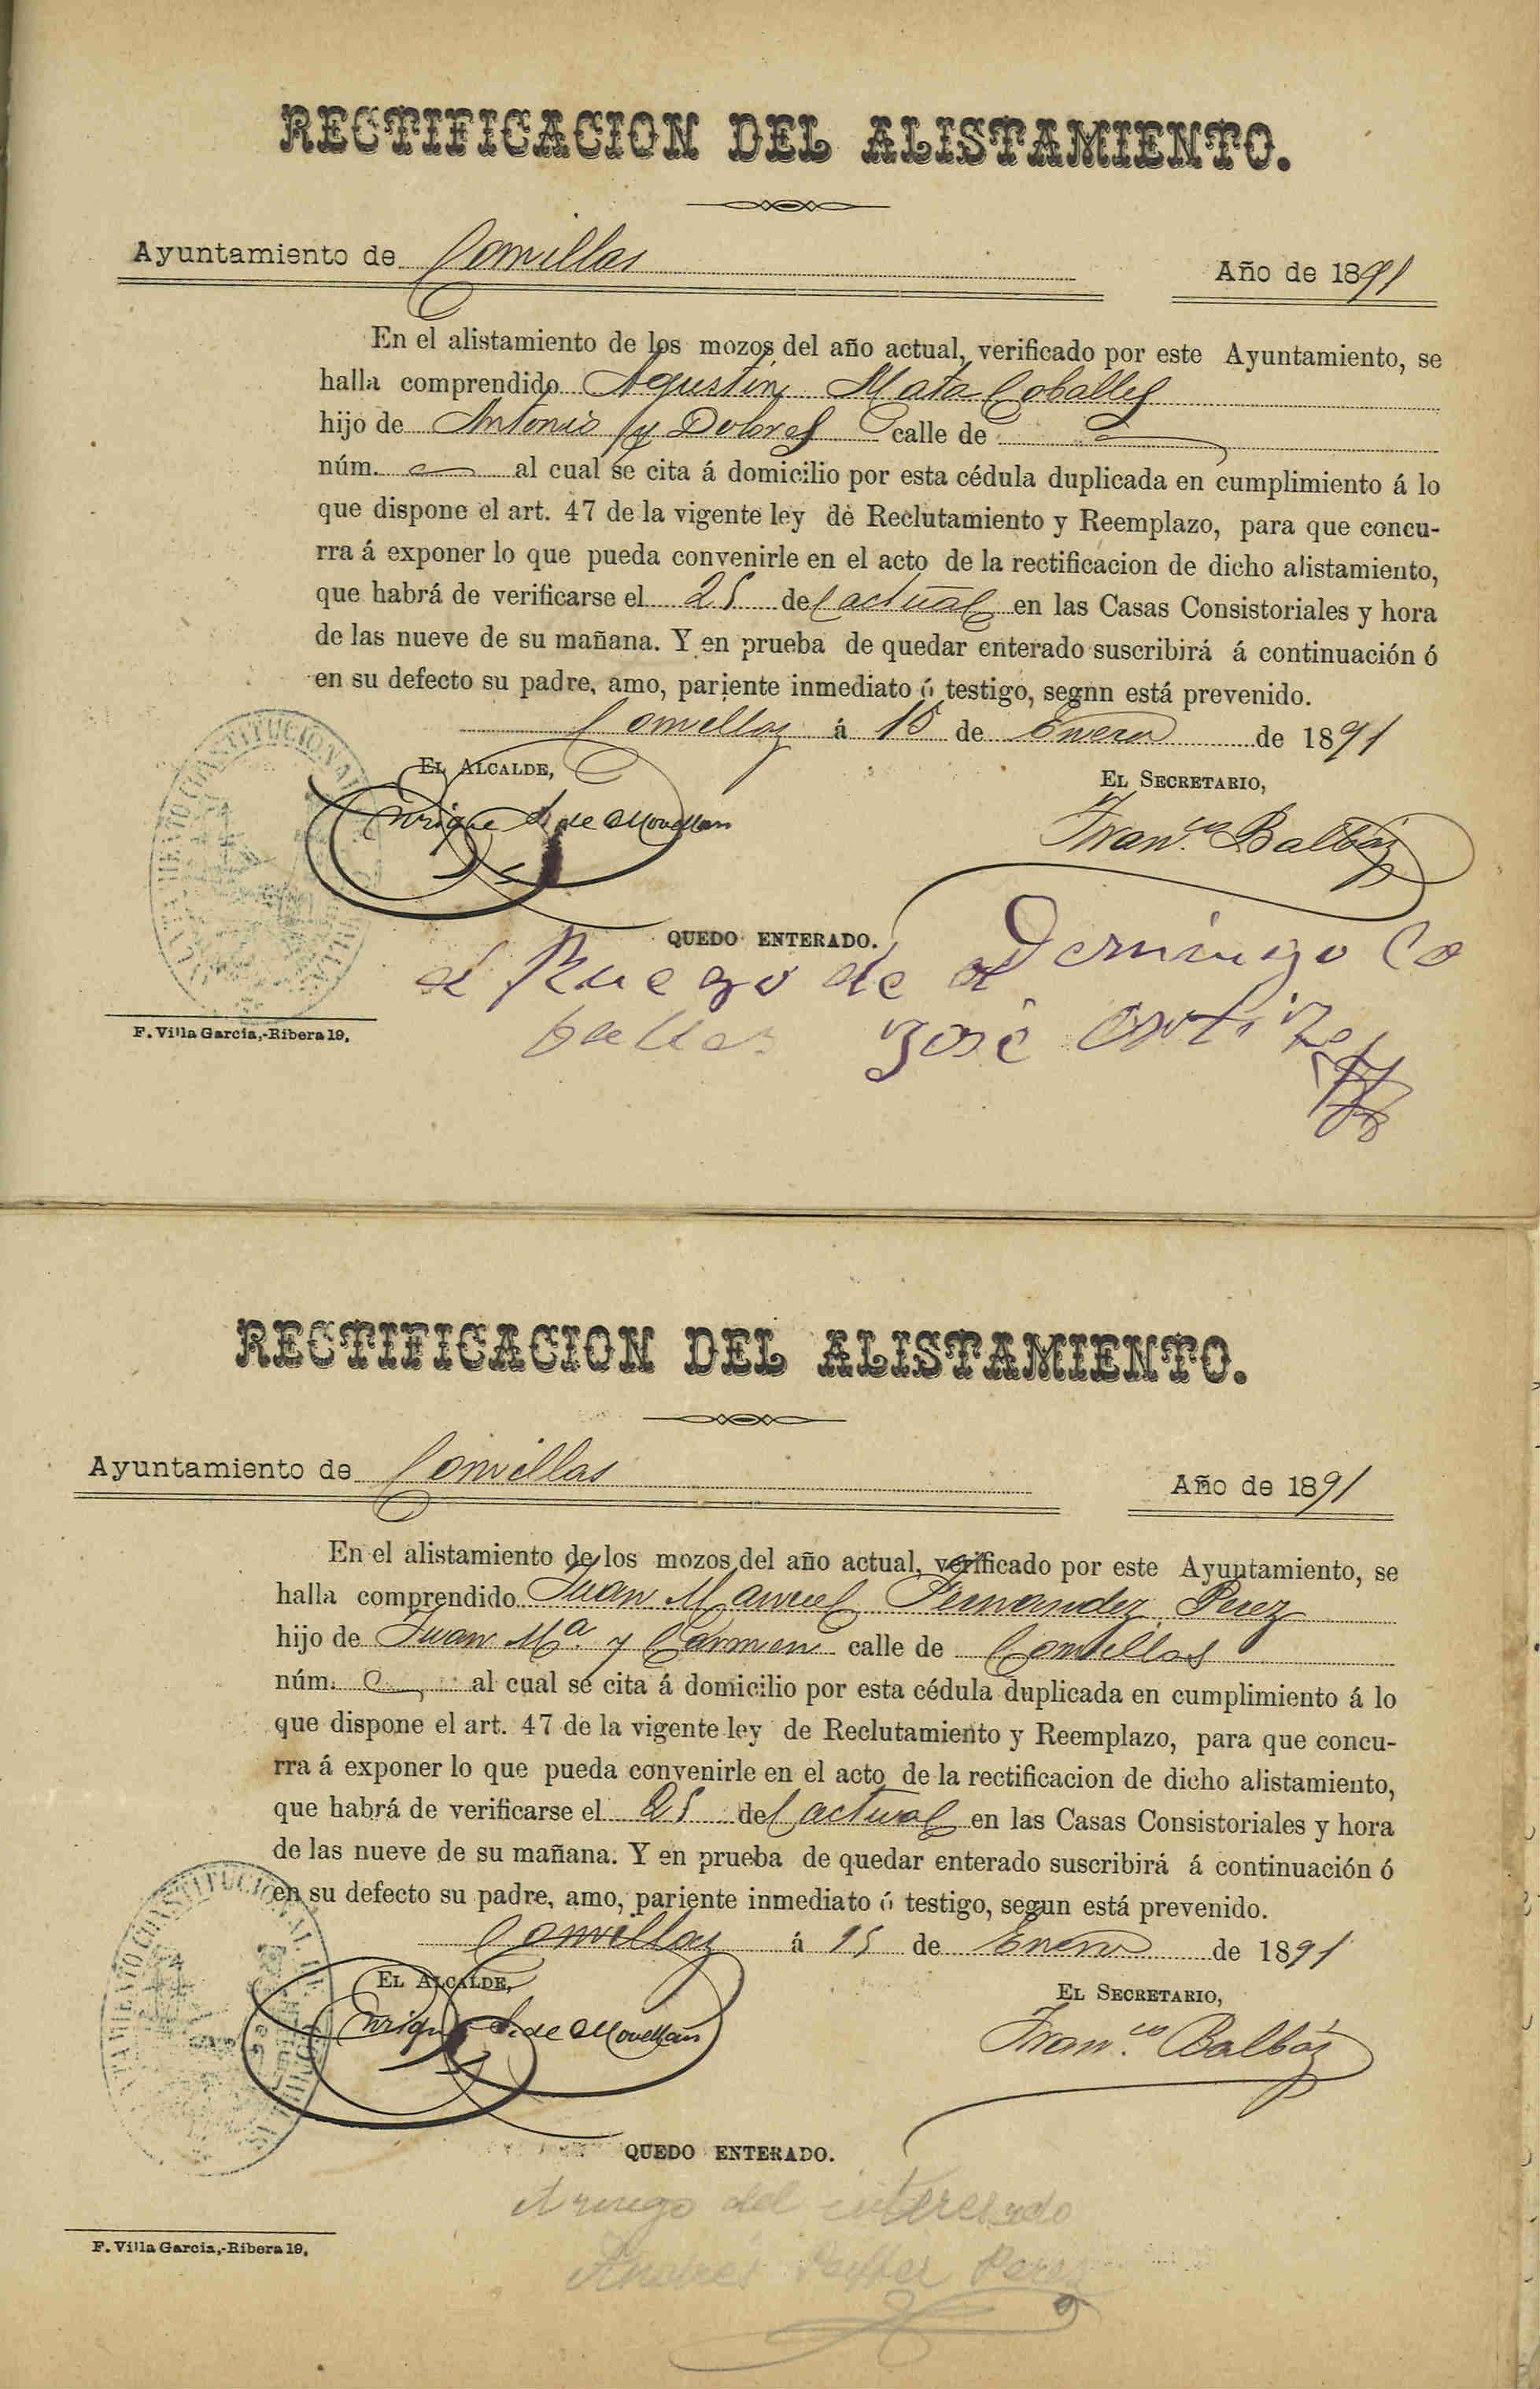 RECTIFICACION DEL ALISTAMIENTO.
Ayuntamiento de Comillas Año de 1891
En el alistamiento de los mozos del año actual, verificado por este Ayuntamiento, se
halla comprendido Agustin Mata Coballes
hijo de Antonio y Dolores calle de
núm. al cual se cita á domicilio por esta cédula duplicada en cumplimiento á lo
que dispone el art. 47 de la vigente ley de Reclutamiento y Reemplazo, para que concu-
rra á exponer lo que pueda convenirle en el acto de la rectificacion de dicho alistamiento,
que habrá de verificarse el 25 del actual en las Casas Consistoriales y hora
de las nueve de su mañana. Y en prueba de quedar enterado suscribirá á continuación ó
en su defecto su padre, amo, pariente inmediato ó testigo, segnn está prevenido.
Comillas á 15 de Enero de 1891
EL ALCALDE,
EL SECRETARIO,
Enrique de Movellan
Fran.co Balbás
QUEDO ENTERADO.
a Ruego de Domingo Co
balles José Ortiz
F. Villa Garcia,-Ribera 19.
RECTIFICACION DEL ALISTAMIENTO.
Ayuntamiento de Comillas Año de 1891
En el alistamiento de los mozos del año actual, verificado por este Ayuntamiento, se
halla comprendido Juan Manuel Fernandez Perez
hijo de Juan Mª. y Carmen calle de Comillas
núm. al cual se cita á domicilio por esta cédula duplicada en cumplimiento á lo
que dispone el art. 47 de la vigente ley de Reclutamiento y Reemplazo, para que concu-
rra á exponer lo que pueda convenirle en el acto de la rectificacion de dicho alistamiento,
que habrá de verificarse el 25 del actual en las Casas Consistoriales y hora
de las nueve de su mañana. Y en prueba de quedar enterado suscribirá á continuación ó
en su defecto su padre, amo, pariente inmediato ó testigo, segun está prevenido.
Comillas á 15 de Enero de 1891
EL ALCALDE,
EL SECRETARIO,
Enrique de Movellan
Fran.co Balbás
QUEDO ENTERADO.
A ruego del interesado
Andrés Perez
F. Villa Garcia,-Ribera 19.